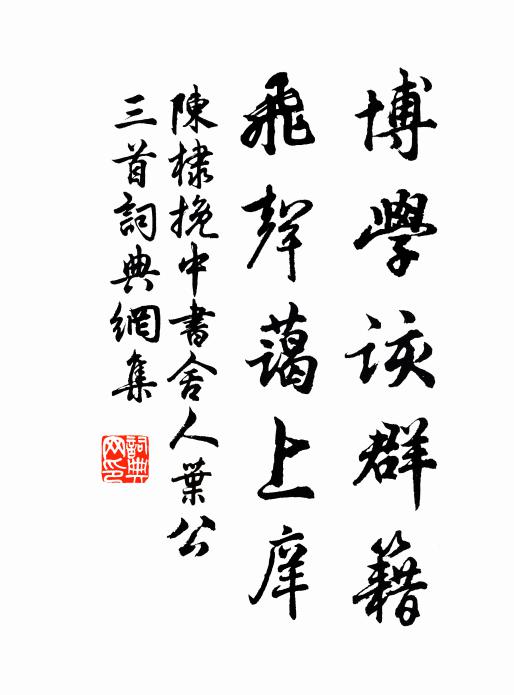 博學該群籍
飛聲藹上庠
陳棣挽中書舍人葉公
三首詞典網集
詞典網印